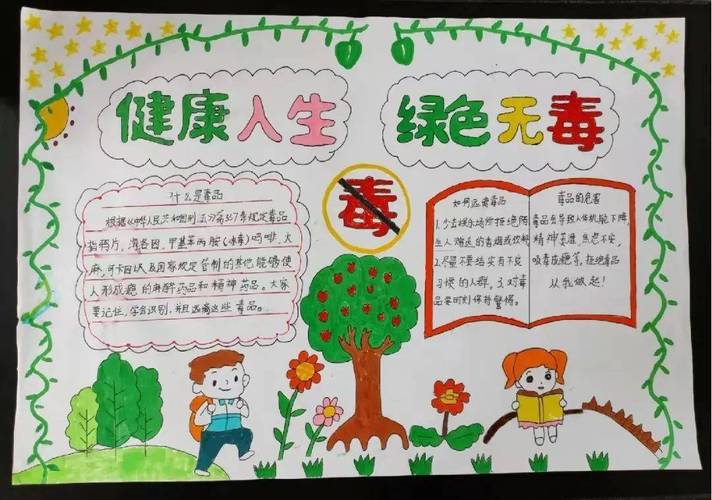 健康人生
绿色无毒
毒
什么是毒品
根据《中华人民共和国刑法》第357条规定毒品
指鸦片、海洛因、甲基苯丙胺（冰毒）吗啡、大
麻，可卡因以及国家规定管制的其他能够使
人形成瘾的麻醉药品和精神药品。大家
要记住，学会识别，并且远离这些毒品。
如何远离毒品
1.少去娱乐场所拒绝陌
生人赠送的香烟或饮料
2.尽量不要结实有不良
习惯的人群，3.对毒
品要时刻保持警惕。
毒品的危害
毒品会导致人体机能下降，
精神萎靡，焦虑不安，
吸毒成瘾等，拒绝毒品
从我做起！